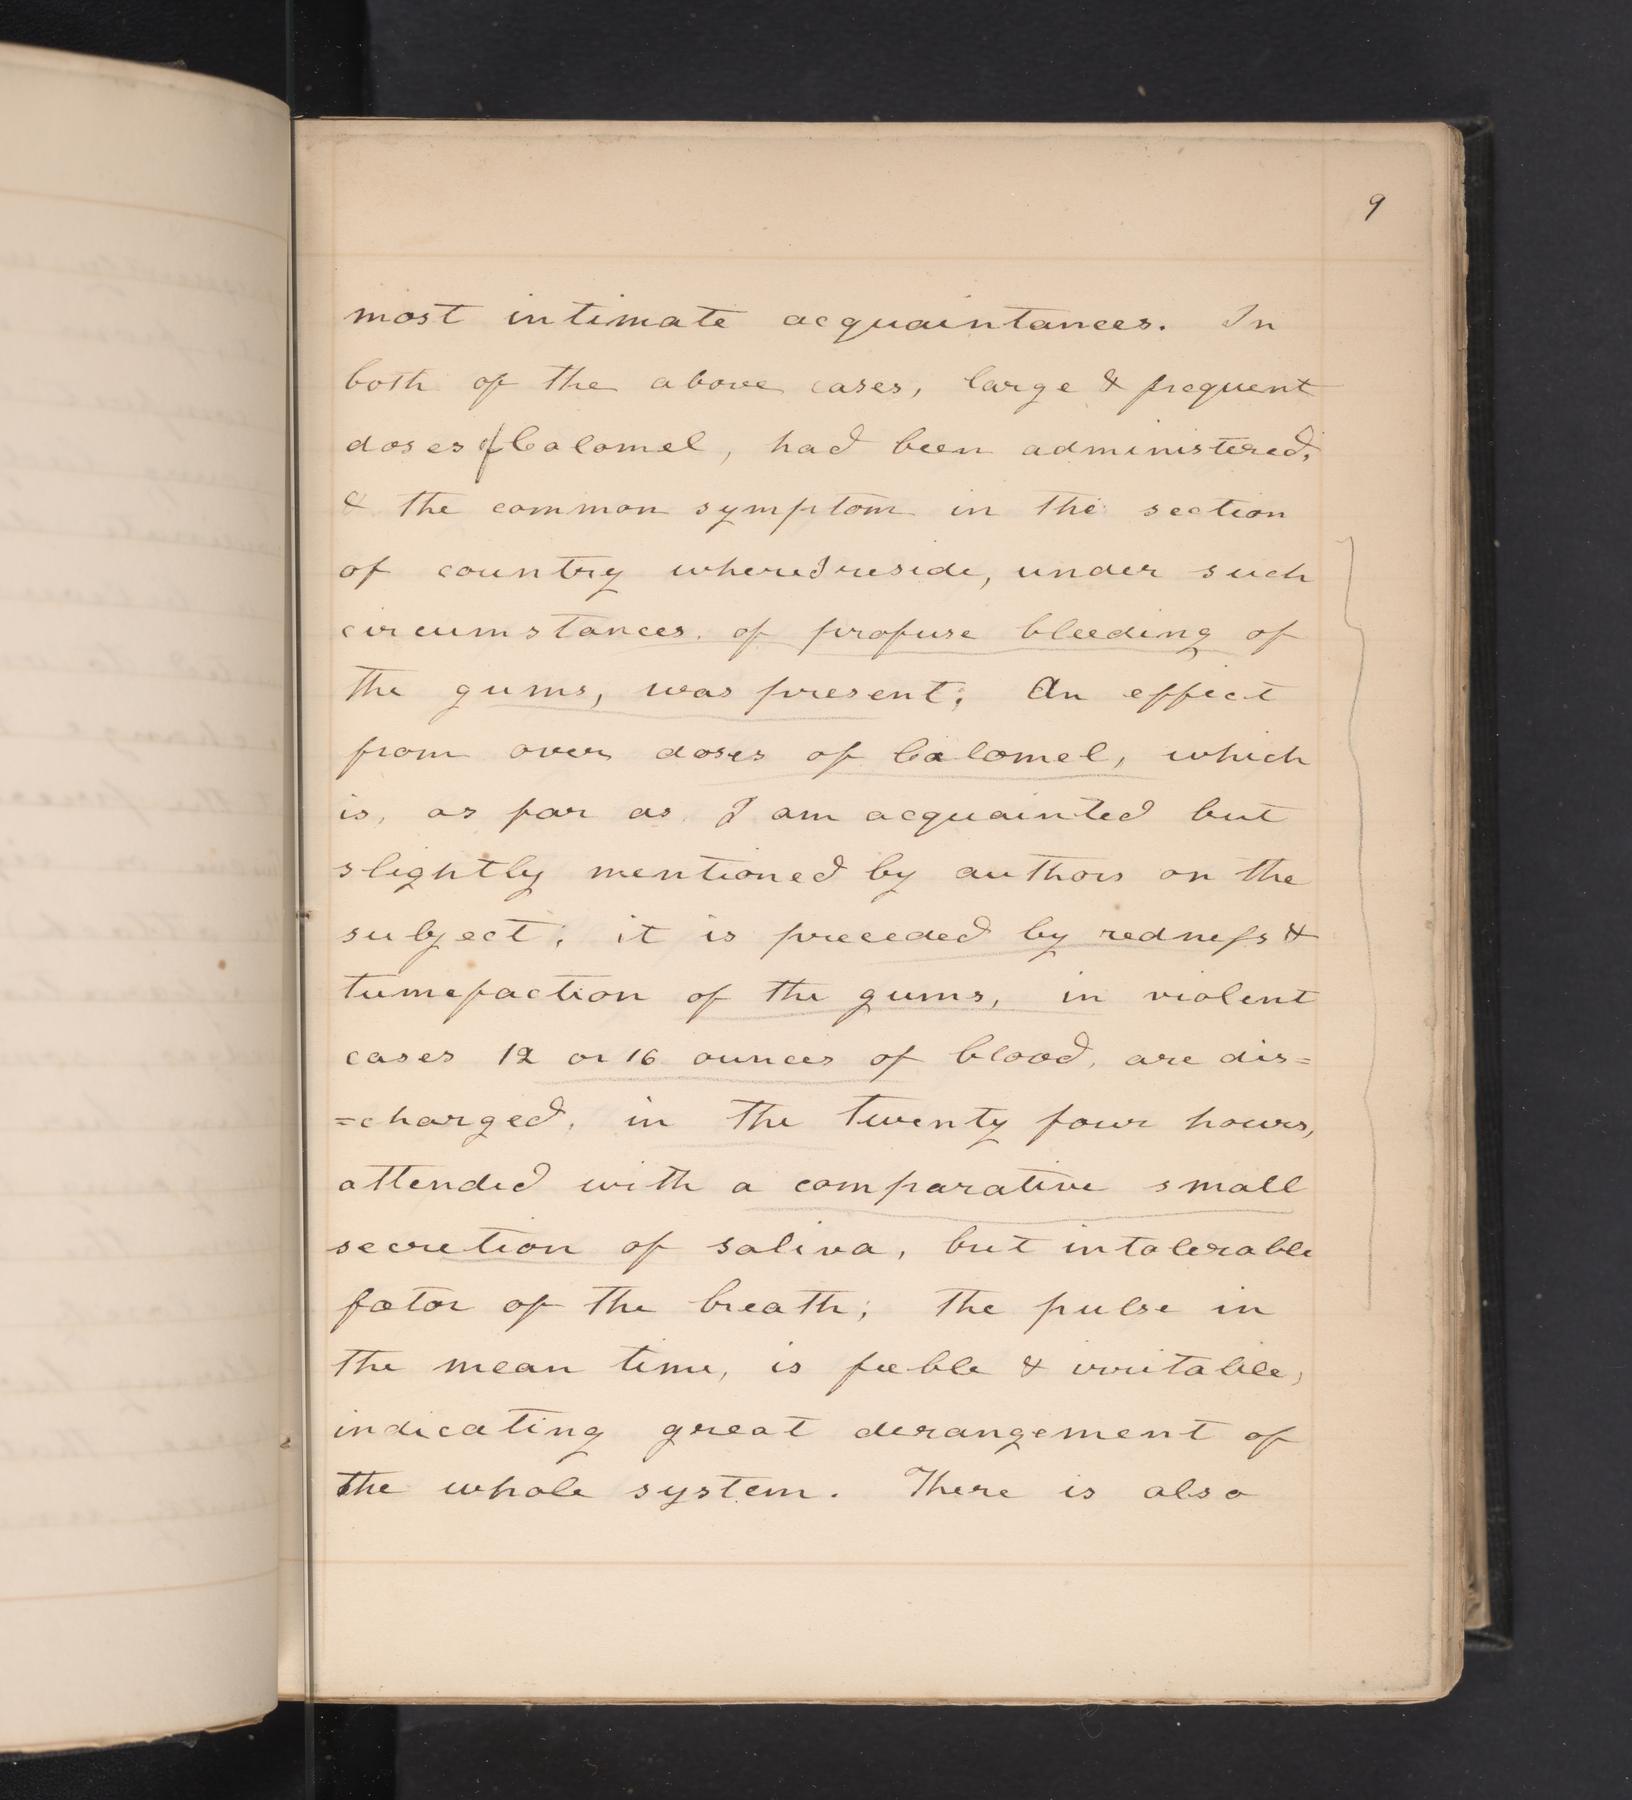 9
most intimate acquaintances. In
both of the above cases, large & frequent
doses of Calomel, had been administered,
& the common symptom in the section
of country where I reside, under such
circumstances, of profuse bleeding of
the gums, was present; An effect
from over doses of Calomel, which
is, as far as I am acquainted but
slightly mentioned by authors on the
subject; it is preceded by redness &
tumefaction of the gums, in violent
cases 12 or 16 ounces of blood, are dis=
=charged, in the twenty four hours,
attended with a comparative small
secretion of saliva, but intolerable
fœtor of the breath; the pulse in
the mean time, is feeble & irritable,
indicating great derangement of
the whole system. There is also